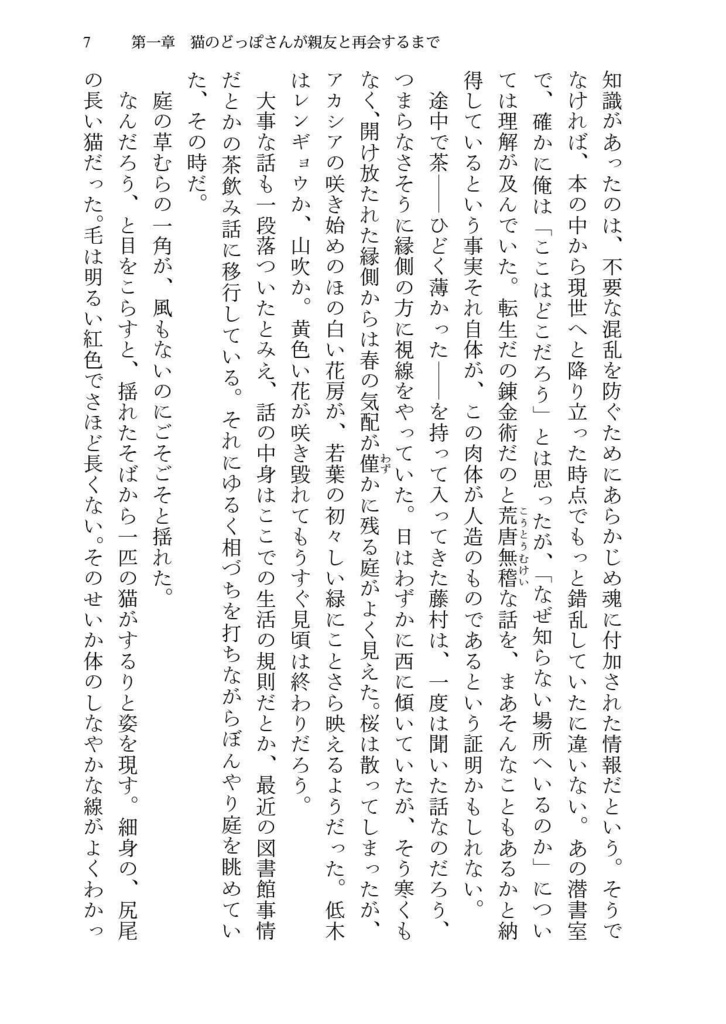 7　第一章　猫のどっぽさんが親友と再会するまで
知識があったのは、不要な混乱を防ぐためにあらかじめ魂に付加された情報だという。そうで
なければ、本の中から現世へと降り立った時点でもっと錯乱していたに違いない。あの潜書室
で、確かに俺は「ここはどこだろう」とは思ったが、「なぜ知らない場所へいるのか」につい
ては理解が及んでいた。転生だの錬金術だのと荒唐無稽な話を、まあそんなこともあるかと納
こうとうむけい
得しているという事実それ自体が、この肉体が人造のものであるという証明かもしれない。
　途中で茶――ひどく薄かった――を持って入ってきた藤村は、一度は聞いた話なのだろう、
つまらなさそうに縁側の方に視線をやっていた。日はわずかに西に傾いていたが、そう寒くも
なく、開け放たれた縁側からは春の気配が僅かに残る庭がよく見えた。桜は散ってしまったが、
わず
アカシアの咲き始めのほの白い花房が、若葉の初々しい緑にことさら映えるようだった。低木
はレンギョウか、山吹か。黄色い花が咲き毀れてもうすぐ見頃は終わりだろう。
　大事な話も一段落ついたとみえ、話の中身はここでの生活の規則だとか、最近の図書館事情
だとかの茶飲み話に移行している。それにゆるく相づちを打ちながらぼんやり庭を眺めてい
た、その時だ。
　庭の草むらの一角が、風もないのにごそごそと揺れた。
　なんだろう、と目をこらすと、揺れたそばから一匹の猫がするりと姿を現す。細身の、尻尾
の長い猫だった。毛は明るい紅色でさほど長くない。そのせいか体のしなやかな線がよくわかっ